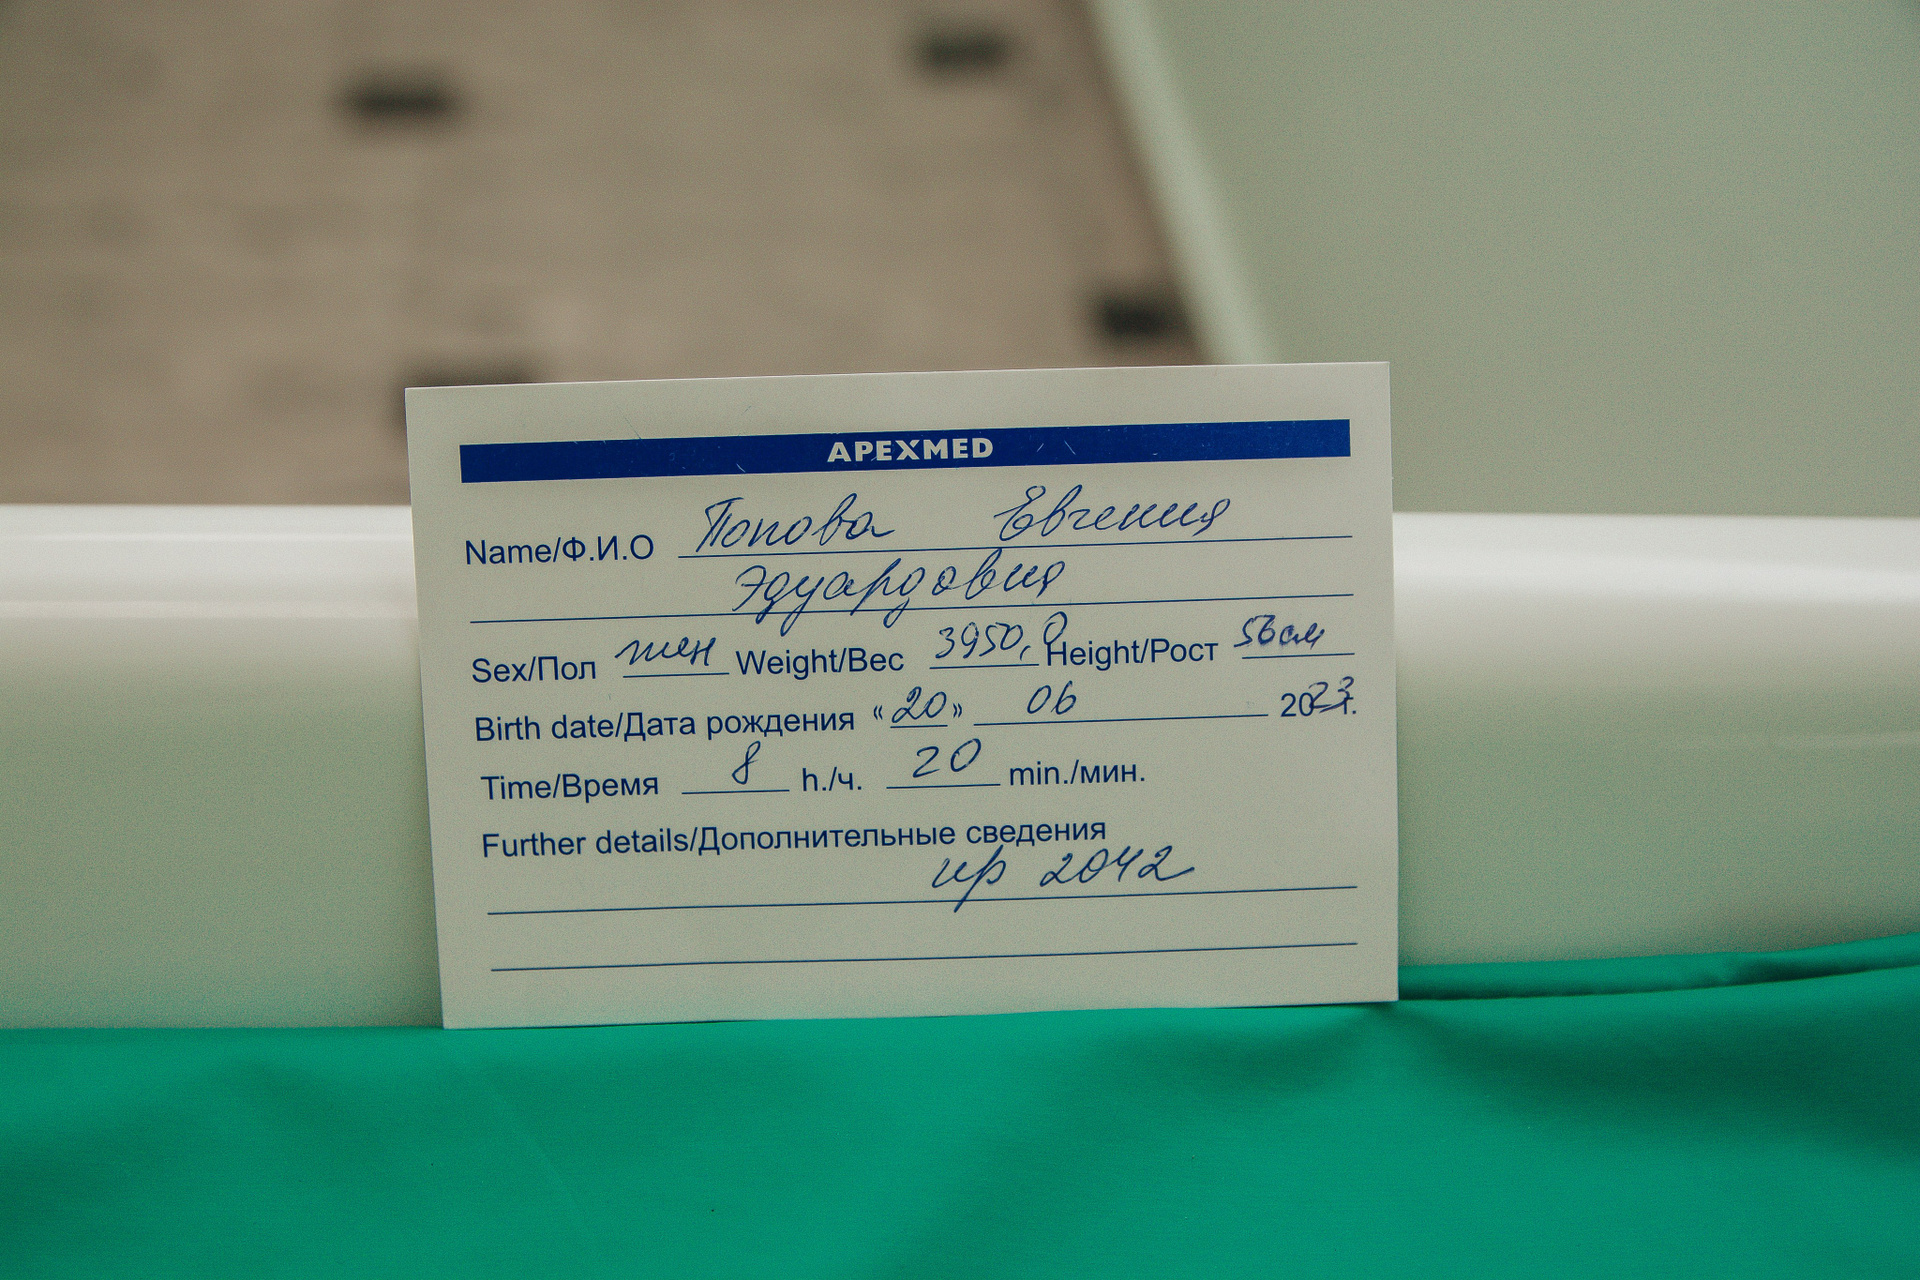 APEXMED
Name/Ф.И.О Попова Евгения
Эдуардовна
Sex/Пол жен Weight/Вес 3950,0 Height/Рост 56см
Birth date/Дата рождения «20» 06 2023г.
Time/Время 8 h./ч. 20 min./мин.
Further details/Дополнительные сведения
ир 2042